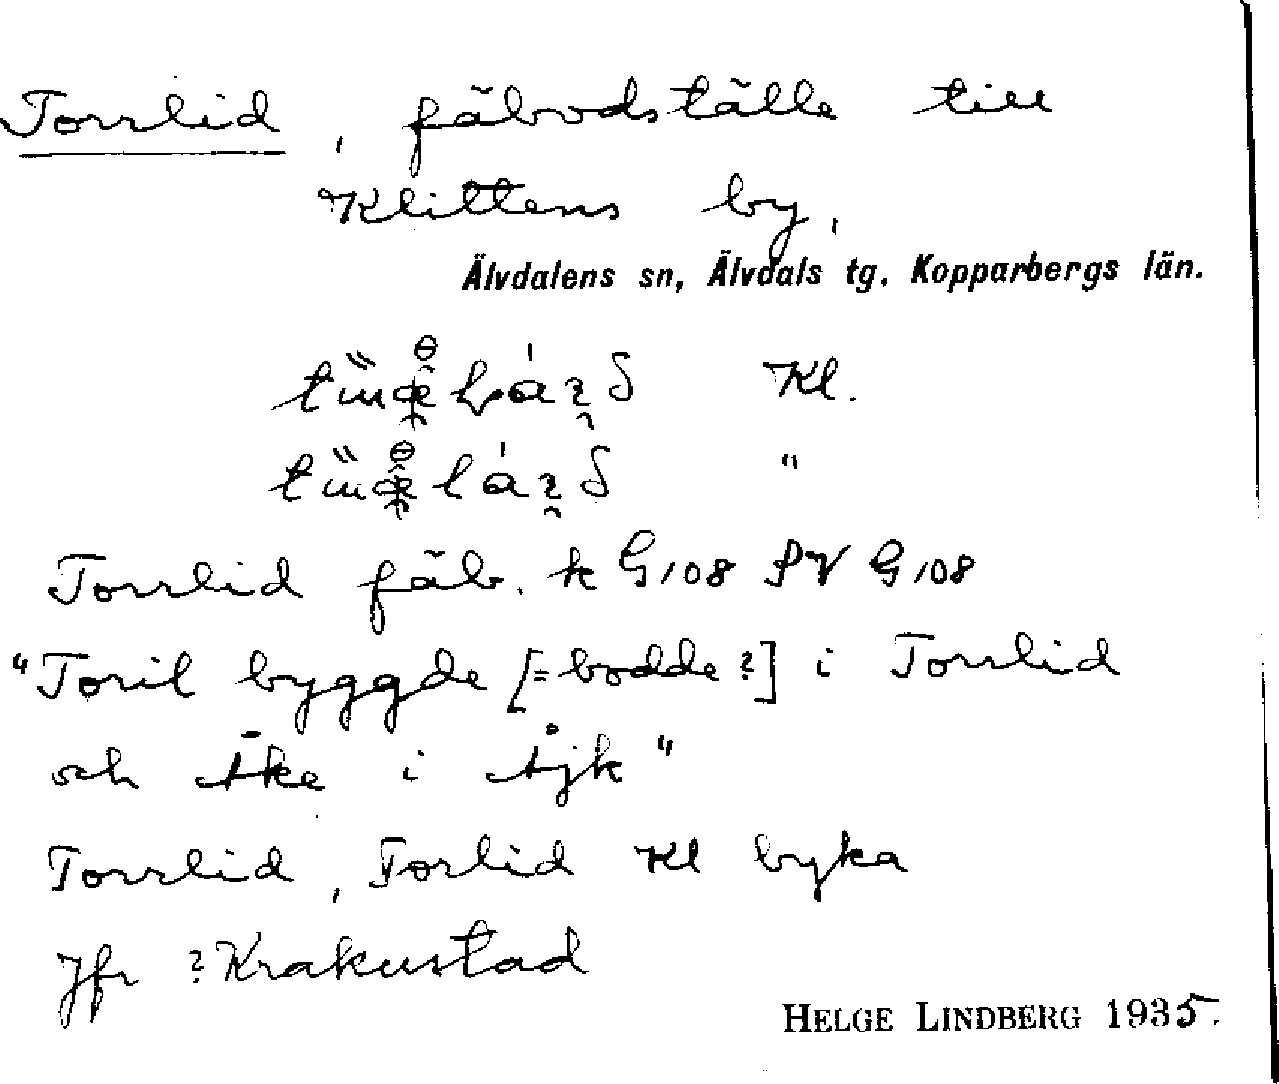 Torrlid, fäbodställe till
Klittens by,
Älvdalens sn, Älvdals tg. Kopparbergs län.
Kl.
"
Torrlid fäb. k G108 SV G108
"Toril byggde [= bodde?] i Torrlid
och Åke i Åjk"
Torrlid, Torlid Kl byka
Jfr ?Krakustad
HELGE LINDBERG 1935.